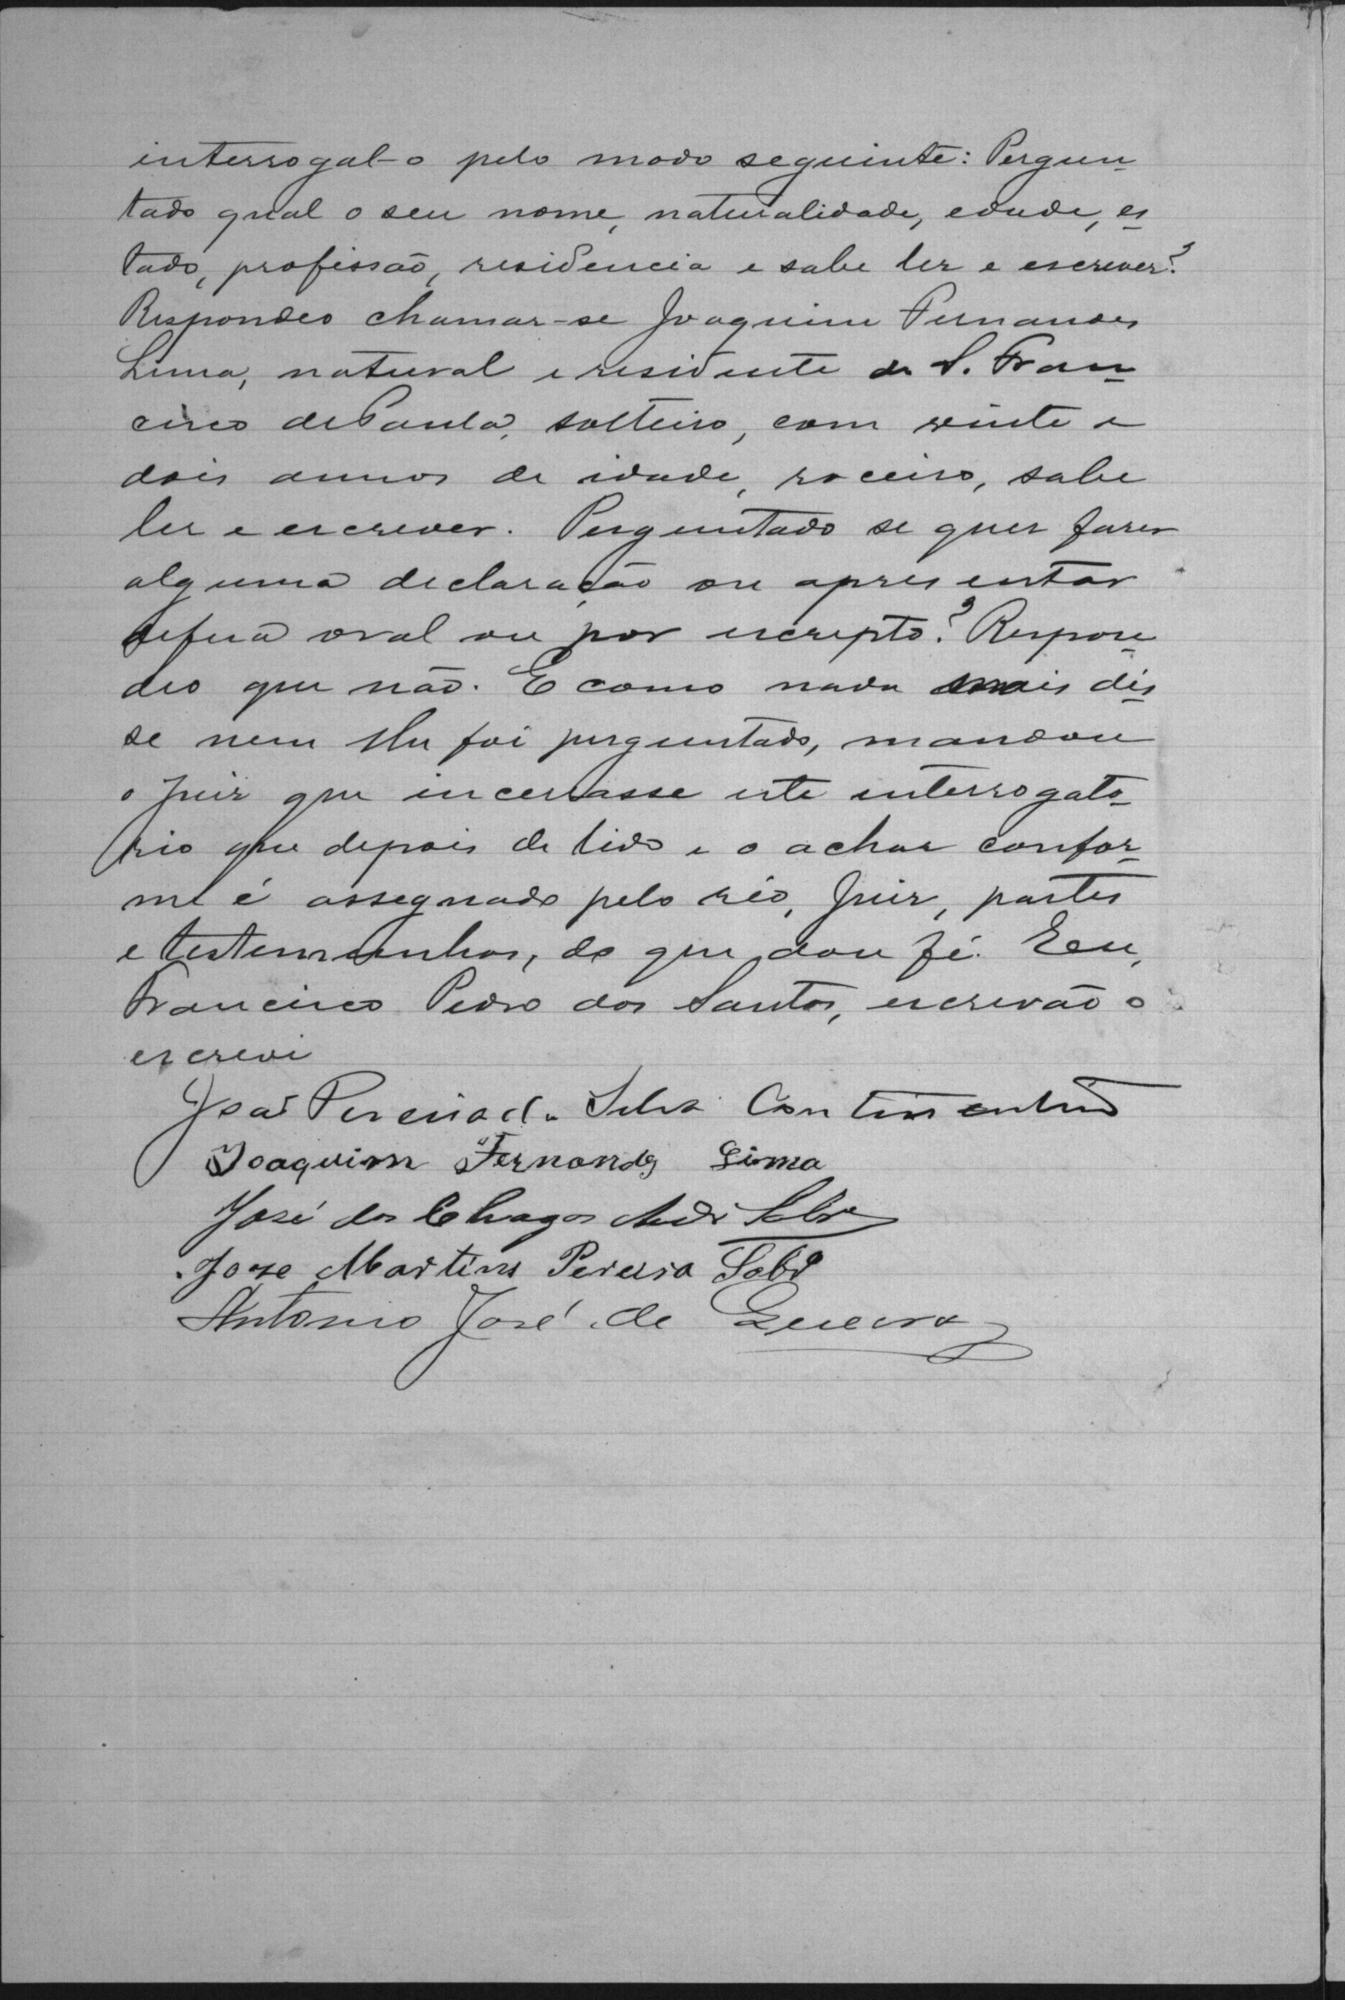 interrogal-o pelo modo seguinte: Pergun-
tado qual o seu nome, naturalidade, edade, es-
tado, profissão, residencia e sabe ler e escrever?
Respondeo chamar-se Joaquim Fernandes
Lima, natural e residente de S. Fran-
cisco de Paula, solteiro, com vinte e
dois annos de idade, roceiro, sabe
ler e escrever. Perguntado se quer fazer
alguma declaração ou apresentar
defesa oral ou por escripto? Respon-
deo que não. E como nada mais dis-
se nem lhe foi perguntado, mandou
o Juiz que incerrasse este interrogato-
rio que depois de lido e o achar confor-
me é assegnado pelo réo, Juiz, partes
e testemunhas, do que dou fé. Eeu,
Francisco Pedro dos Santos, escrivão o
escrevi
José Pereira da Silva Continentino
Joaquim Fernandes Lima
José das Chagas
Joze Martins Pereira Sobro
Antonio José de Gueirra